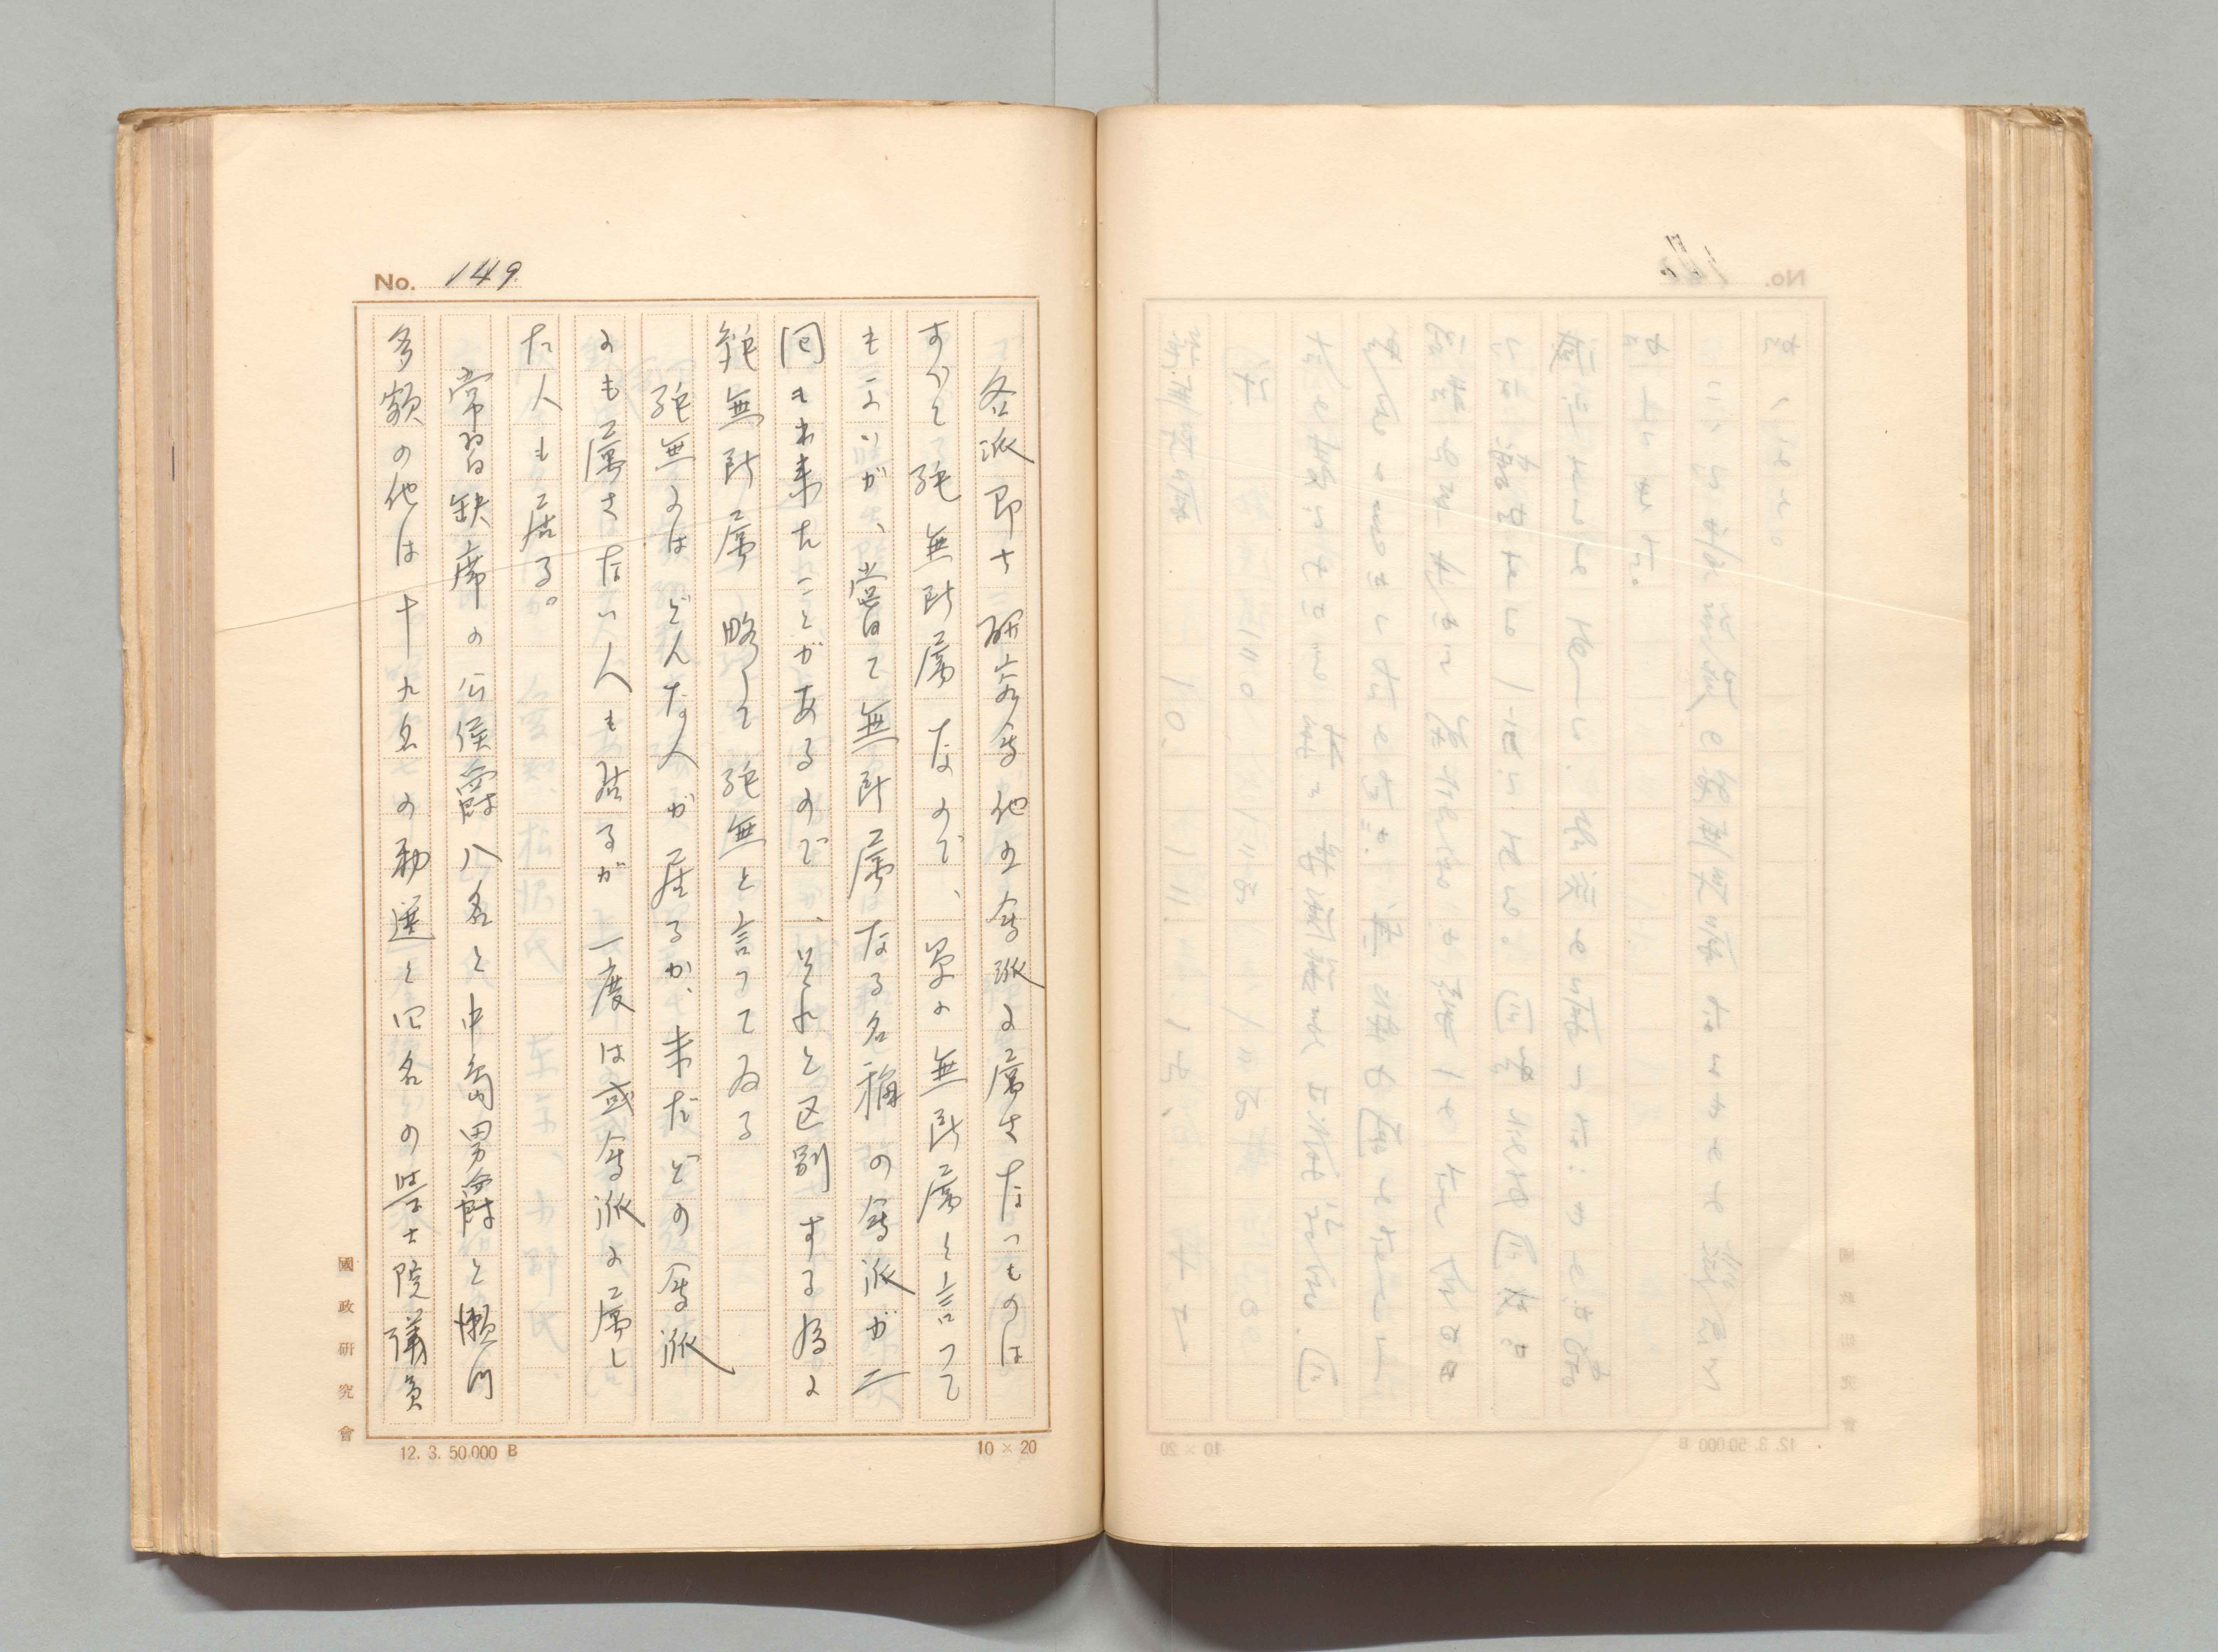 No. 149.
各派即ち研究会他の会派に属さないものは
すべて純無所属なので、単に無所属と言つて
もよいが、嘗て無所属なる名称の会派が二
回も出来たことがあるので、それと区別する為に
純無所属 略して純無と言つてゐる
純無にはどんな人が居るか、未だどの会派
にも属さない人も居るが一度は或会派に属し
た人も居る。
常習缺席の公侯爵八名と中島男爵と瀬川
多額の他は十九名の勅選と四名の学士院議員
國政研究會
12. 3. 50.000 B
10 × 20